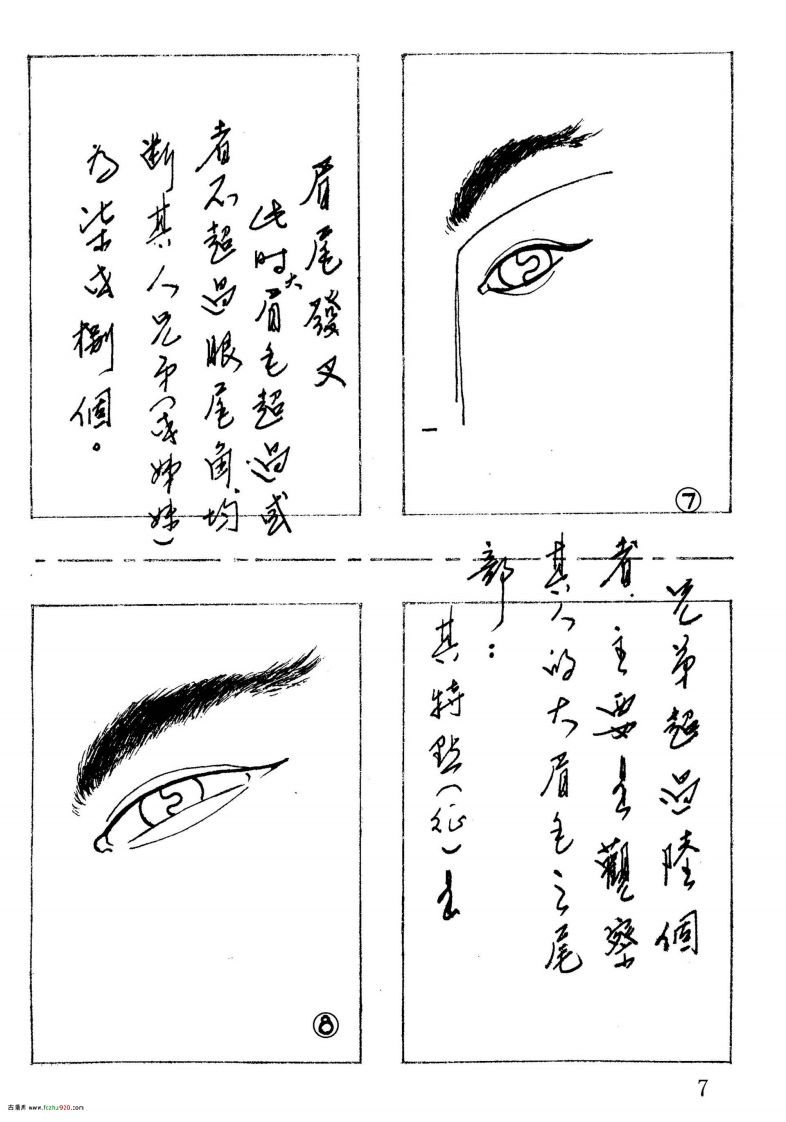 眉尾發叉
此时大眉毛超過或
者不超過眼尾角均
断其人兄弟(或姊妹)
為柒或捌個。
⑦
兄弟超過陸個
者,主要是觀察
其人的大眉毛之尾
部:
其特點(征)是
⑧
7
古籍库 www.fczhu920.com